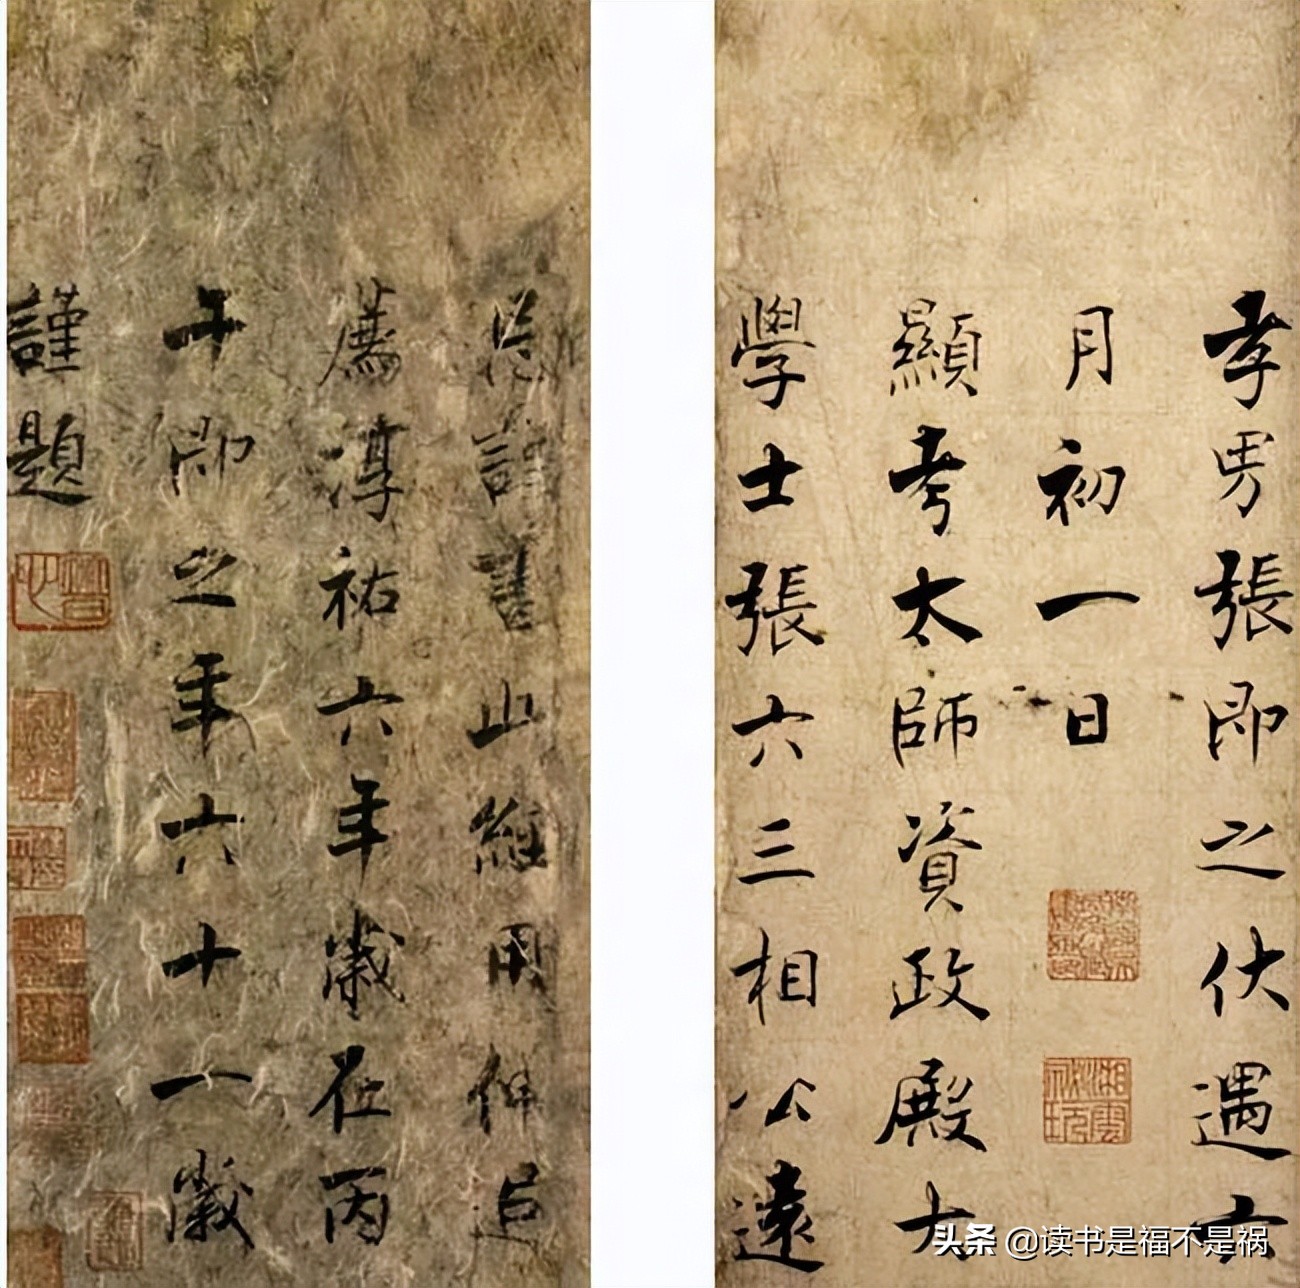 孝男張即之伏遇六
月初一日
顯考太師資政殿大
學士張六三相公遠
忌謹書此經用伸追
薦淳祐六年歲在丙
午即之年六十一歲
謹題
头条 @读书是福不是祸